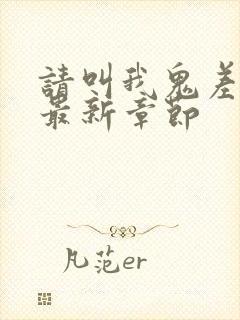 請叫我鬼差
最新章節
凡范er